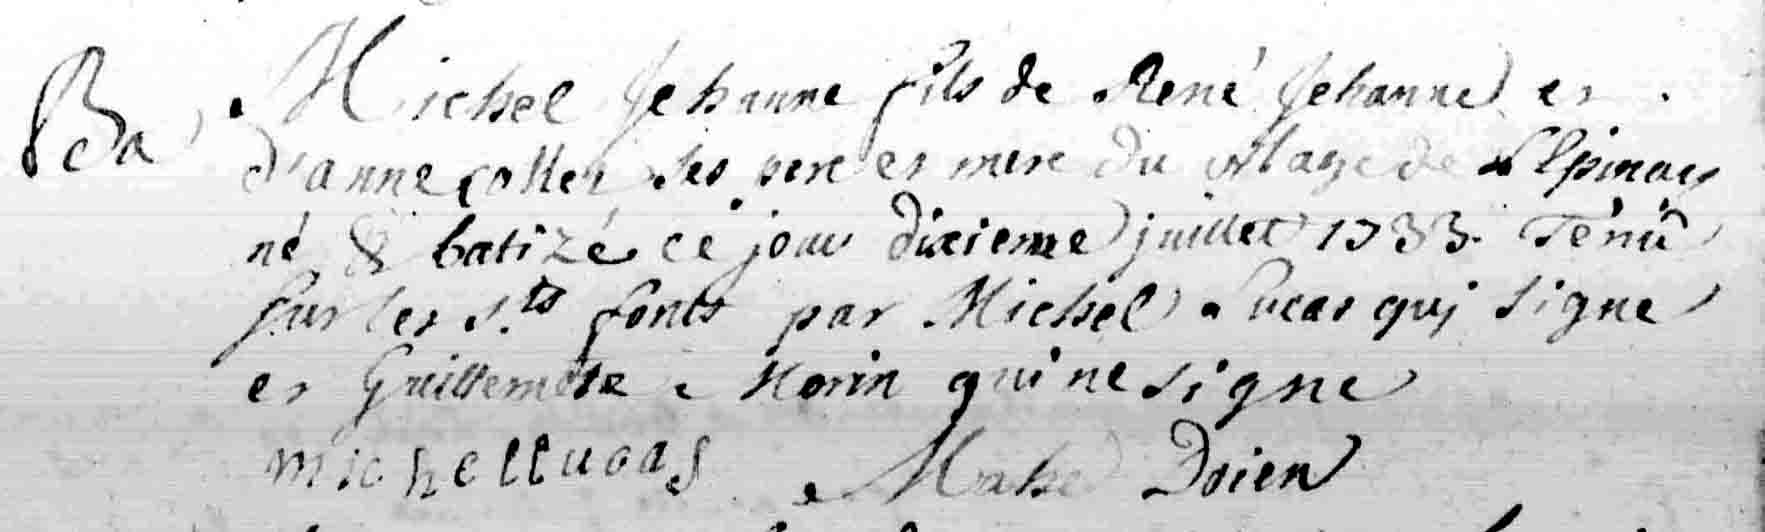 Ba Michel Jehanne fils de René Jehanne et
d'anne collet ses pere et mere du vilage de l'Epinay
né & batizé ce jour dixieme juillet 1733. Tenû
sur les s.ts fonts par Michel Lucas qui signe
et Guillemette Morin qui ne signe
michel lucas Mahé Doien